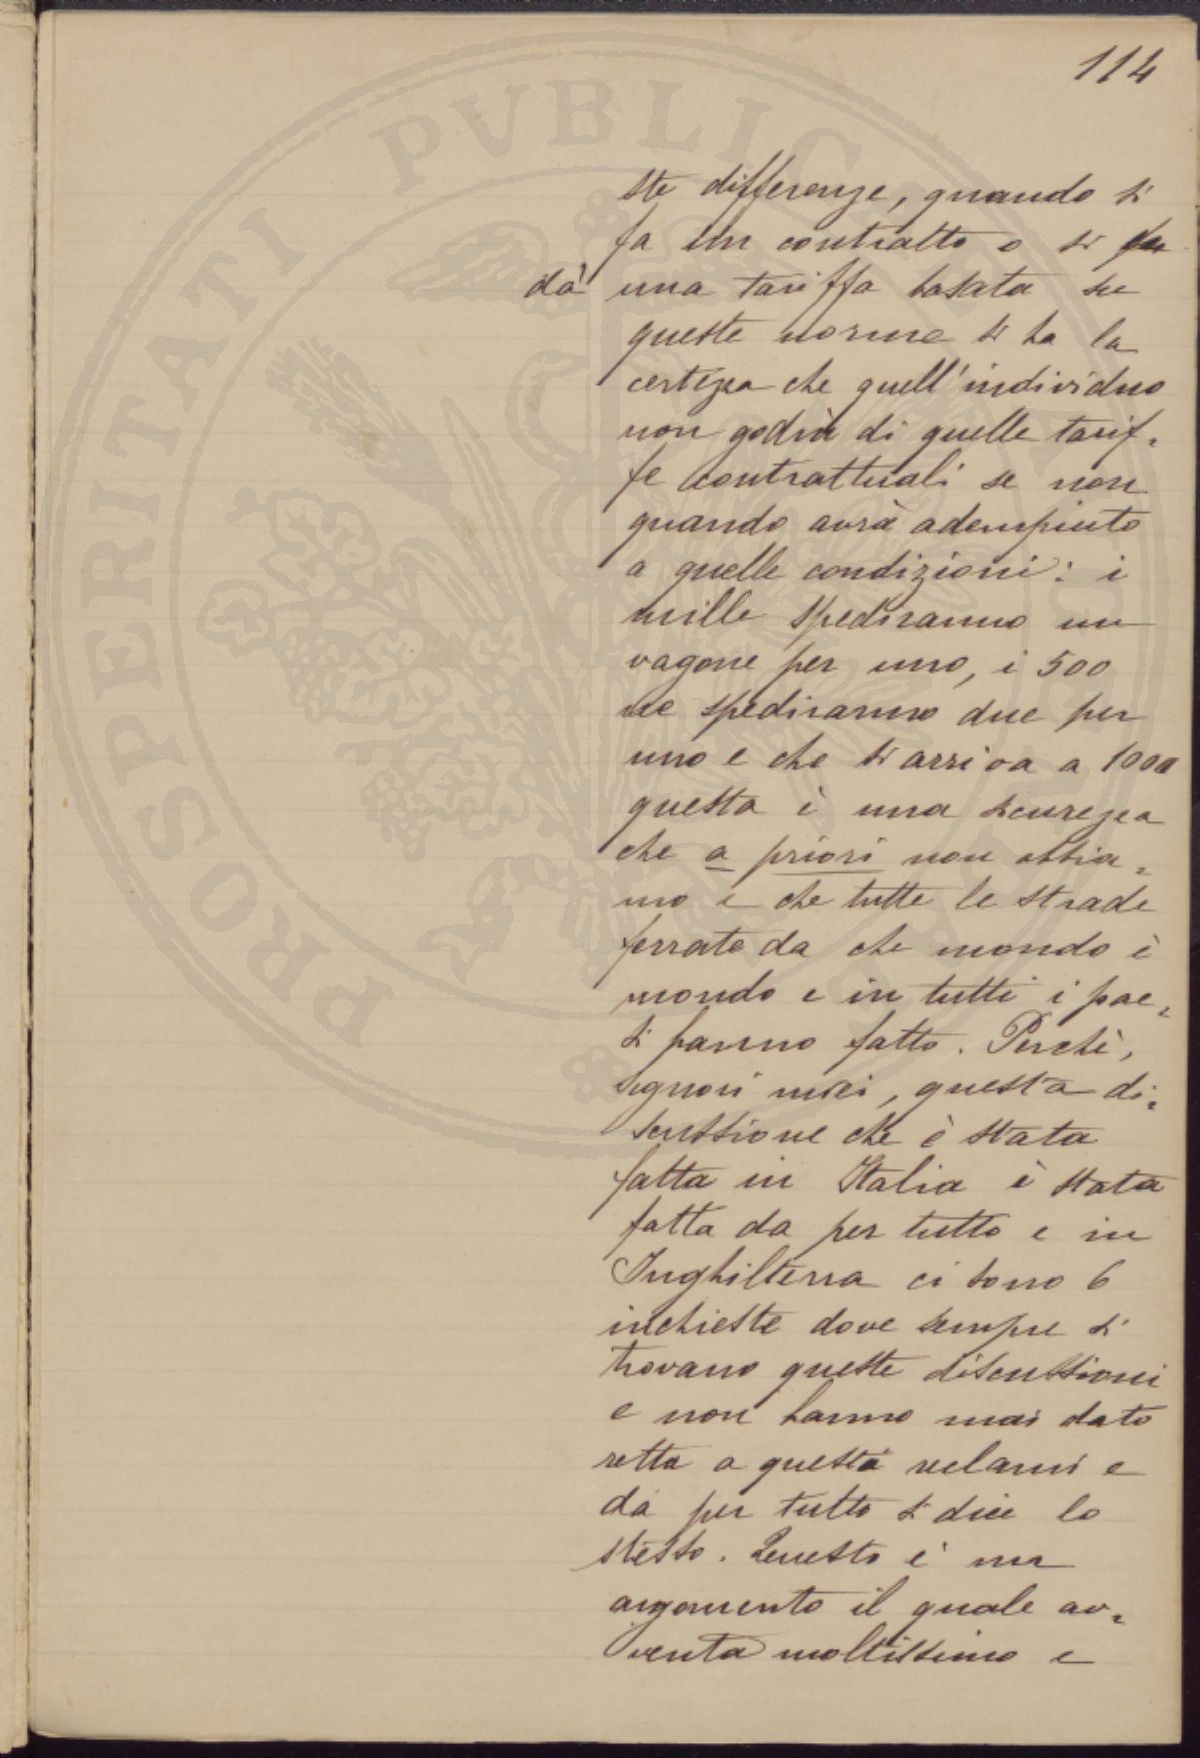 114
ste differenze, quando si
fa un contratto o si fa
dà una tariffa basata su
queste norme si ha la
certezza che quell'individuo
non godrà di quelle tarif=
fe contrattuali se non
quando avrà adempiuto
a quelle condizioni: i
mille spediranno un
vagone per uno, i 500
ne spediranno due per
uno e che si arriva a 1000
questa è una sicurezza
che a priori non abbia=
mo e che tutte le strade
ferrate da che mondo è
mondo e in tutti i pae=
si hanno fatto. Perchè,
signori miei, questa di=
scussione che è stata
fatta in Italia è stata
fatta da per tutto e in
Inghilterra ci sono 6
inchieste dove sempre si
trovano queste discussioni
e non hanno mai dato
retta a questi reclami e
da per tutto si dice lo
stesso. Questo è un
argomento il quale av=
venta moltissimo e
PROSPERITATI PVBLICAE